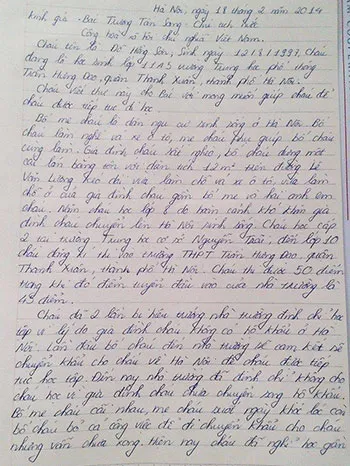 Hà Nội, ngày 18 tháng 2 năm 2014
Kính gửi: Bác Trương Tấn Sang - Chủ tịch nước
Cộng hòa xã hội chủ nghĩa Việt Nam.
Cháu tên là Đỗ Hồng Sơn, Sinh ngày 12/8/1997, Cháu
đang là học sinh lớp 11A5 trường trung học phổ thông
Trần Hưng Đạo, quận Thanh Xuân, thành phố Hà Nội.
Cháu viết thư này cho Bác với mong muốn giúp cháu để
cháu được tiếp tục đi học
Bố mẹ cháu là dân ngụ cư sinh sống ở Hà Nội. Bố
cháu làm nghề rửa xe ô tô, mẹ cháu phụ giúp bố cháu
cùng làm. Gia đình cháu rất nghèo, bố cháu dựng một
cái lán bằng tôn với diện tích 12 m² trên đường Lê
Văn Lương kéo dài vừa làm chỗ rửa xe ô tô, vừa làm
chỗ ở của gia đình cháu gồm bố mẹ và hai anh em
cháu. Năm cháu học lớp 8 do hoàn cảnh khó khăn gia
đình cháu chuyển lên Hà Nội sinh sống. Cháu học cấp
2 tại trường Trung học cơ sở Nguyễn Trãi, đến lớp 10
cháu đăng kí thi vào trường THPT Trần Hưng Đạo - quận
Thanh Xuân, thành phố Hà Nội. Cháu thi được 50 điểm
trong khi đó điểm tuyển đầu vào của nhà trường là
45 điểm.
Cháu đã 2 lần bị hiệu trưởng nhà trường đình chỉ học
tập vì lý do gia đình cháu không có hộ khẩu ở Hà
Nội. Lần đầu bố cháu đến nhà trường để cam kết sẽ
chuyển khẩu cho cháu về Hà Nội để cháu được tiếp
tục học tập. Đến nay nhà trường đã đình chỉ không cho
cháu học vì gia đình cháu chưa chuyển song hộ khẩu.
Bố mẹ cháu cãi nhau, mẹ cháu suốt ngày khóc lóc còn
bố cháu bỏ cả công việc để đi chuyển khẩu cho cháu
nhưng vẫn chưa xong. Hiện nay cháu đã nghỉ học gần